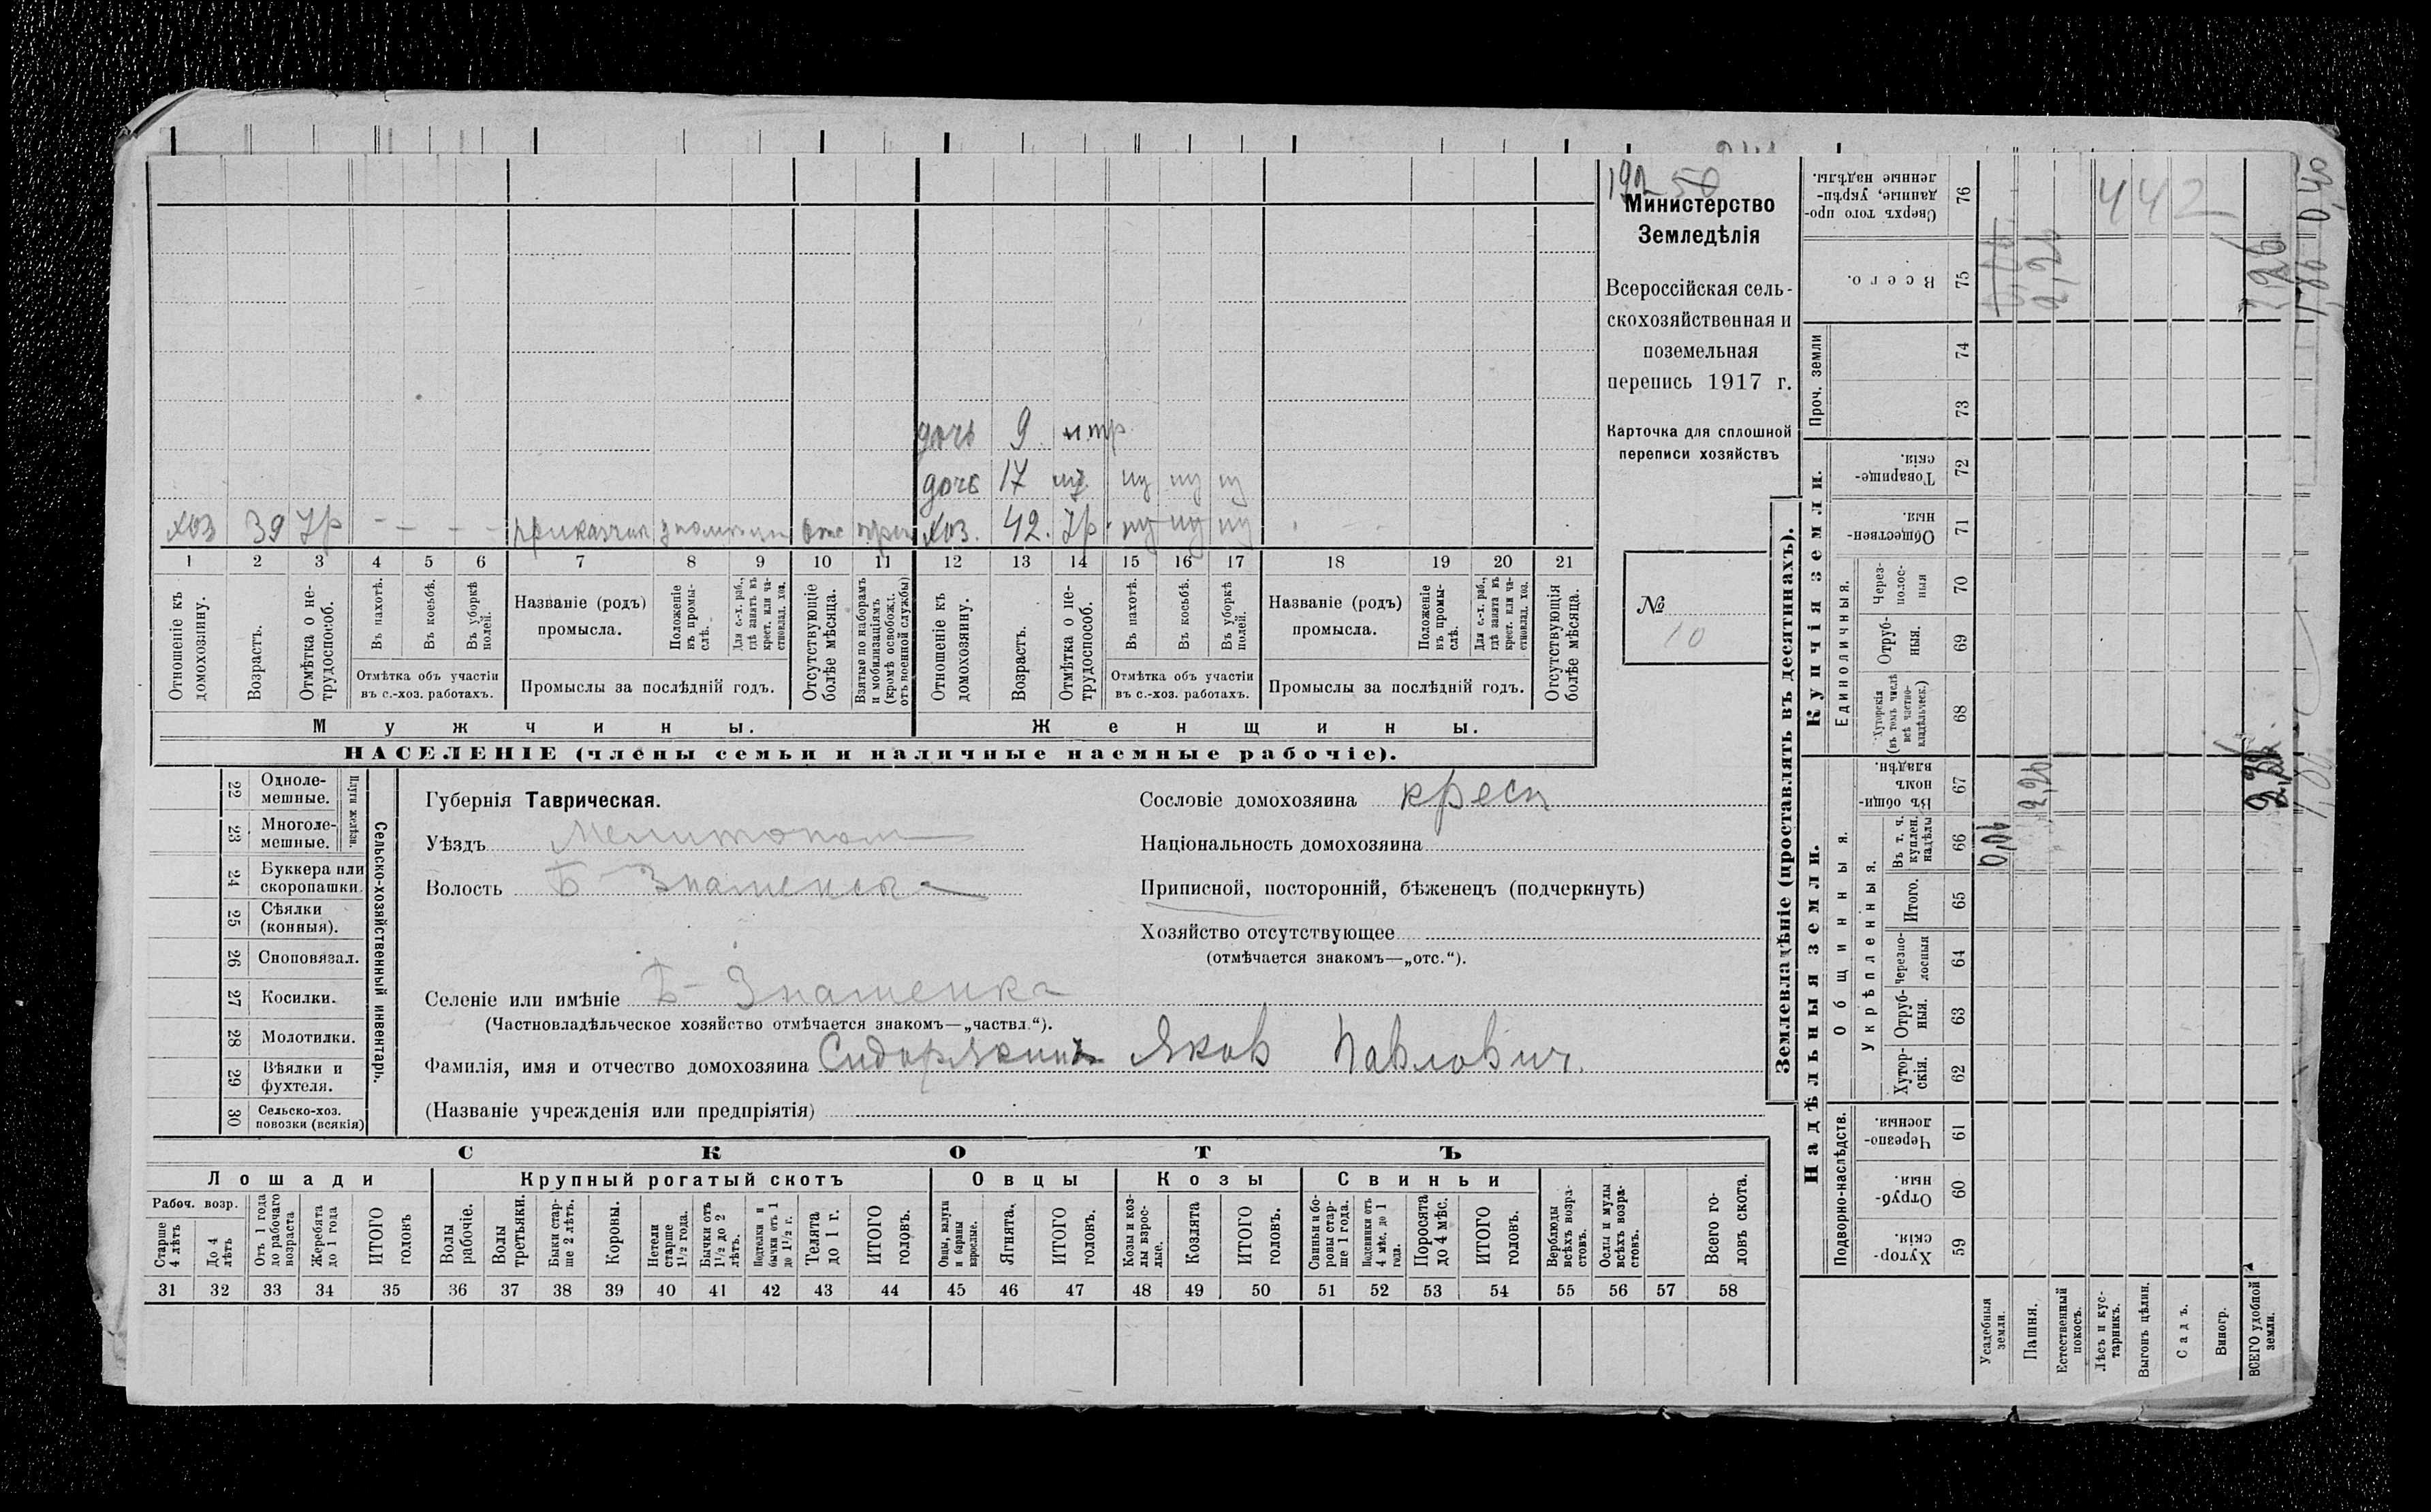 Министерство
Земледѣлія
Всероссійская сель-
скохозяйственная и
поземельная
перепись 1917 г.
Карточка для сплошной
переписи хозяйствъ
№
10
дочь 9 н.тр
дочь 17
хоз 39 Тр - - - - приказчик
хоз. 42. Тр
1 2 3 4 5 6 7 8 9 10 11 12 13 14 15 16 17 18 19 20 21
Отношеніе къ домохозяину.
Возрастъ.
Отмѣтка о не-трудоспособ.
Въ пахотѣ.
Въ косьбѣ.
Въ уборкѣ полей.
Отмѣтка объ участіи въ с.-хоз. работахъ.
Названіе (родъ) промысла.
Положеніе въ промы-слѣ.
Для с.-х. раб., гдѣ занятъ въ крест. или ча-стновлад. хоз.
Промыслы за послѣдній годъ.
Отсутствующіе болѣе мѣсяца.
Взятые по наборамъ и мобилизаціямъ (кромѣ освобожд. отъ военной службы)
Отношеніе къ домохозяину.
Возрастъ.
Отмѣтка о не-трудоспособ.
Въ пахотѣ.
Въ косьбѣ.
Въ уборкѣ полей.
Отмѣтка объ участіи въ с.-хоз. работахъ.
Названіе (родъ) промысла.
Положеніе въ промы-слѣ.
Для с.-х. раб., гдѣ занята въ крест. или ча-стновлад. хоз.
Промыслы за послѣдній годъ.
Отсутствующія болѣе мѣсяца.
Мужчины.
Женщины.
НАСЕЛЕНІЕ (члены семьи и наличные наемные рабочіе).
22 Одноле-мешные.
23 Многоле-мешные.
Плуги желѣзн.
24 Буккера или скоропашки.
25 Сѣялки (конныя).
26 Сноповязал.
27 Косилки.
28 Молотилки.
29 Вѣялки и фухтеля.
30 Сельско-хоз. повозки (всякія)
Сельско-хозяйственный инвентарь.
Губернія Таврическая.
Уѣздъ Мелитопол
Волость Б-Знаменска
Селеніе или имѣніе Б-Знаменка
(Частновладѣльческое хозяйство отмѣчается знакомъ—„частвл.“).
Фамилія, имя и отчество домохозяина Сидорякинъ Яков Павлович.
(Названіе учрежденія или предпріятія)
Сословіе домохозяина крест
Національность домохозяина
Приписной, посторонній, бѣженецъ (подчеркнуть)
Хозяйство отсутствующее
(отмѣчается знакомъ—„отс.“).
СКОТЪ
Лошади
Крупный рогатый скотъ
Овцы
Козы
Свиньи
Рабоч. возр.
Старше 4 лѣтъ
До 4 лѣтъ
Отъ 1 года до рабочаго возраста
Жеребята до 1 года
ИТОГО головъ
Волы рабочіе.
Волы третьяки.
Быки стар-ше 2 лѣтъ.
Коровы.
Нетели старше 1½ года.
Бычки отъ 1½ до 2 лѣтъ.
Подтелки и бычки отъ 1 до 1½ г.
Телята до 1 г.
ИТОГО головъ.
Овцы, валухи и бараны взрослые.
Ягнята.
ИТОГО головъ.
Козы и коз-лы взрос-лые.
Козлята
ИТОГО головъ.
Свиньи и бо-ровы стар-ше 1 года.
Подсвинки отъ 4 мѣс. до 1 года.
Поросята до 4 мѣс.
ИТОГО головъ.
Верблюды всѣхъ возра-стовъ.
Ослы и мулы всѣхъ возра-стовъ.
Всего го-ловъ скота.
31 32 33 34 35 36 37 38 39 40 41 42 43 44 45 46 47 48 49 50 51 52 53 54 55 56 57 58
Землевладѣніе (проставлять въ десятинахъ).
Надѣльныя земли.
Купчія земли.
Проч. земли
Подворно-наслѣдств.
Общинныя.
Укрѣпленныя.
Единоличныя.
Хутор-скія. 59
Отруб-ныя. 60
Черезпо-лосныя. 61
Хутор-скія. 62
Отруб-ныя. 63
Черезпо-лосныя 64
Итого. 65
Въ т. ч. куплен. надѣлы 66
Въ общин-номъ владѣн. 67
Хуторскія (въ томъ числѣ всѣ частно-владѣльческ.) 68
Отруб-ныя. 69
Через-полос-ныя 70
Обществен-ныя. 71
Товарище-скія. 72
73
74
Всего. 75
Сверхъ того про-данные, укрѣп-ленные надѣлы. 76
Усадебныя земли.
Пашня.
Естественный покосъ.
Лѣсъ и кус-тарникъ.
Выгонъ цѣлин.
Садъ.
Виногр.
ВСЕГО удобной земли.
2,26
2,26
442